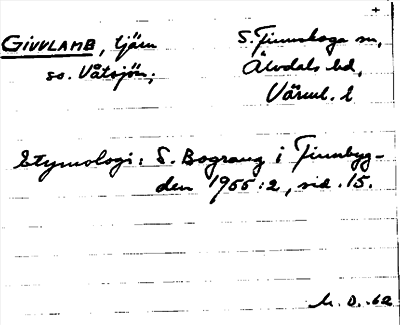 +
GIVVLAMB, tjärn S. Finnskoga sn,
so. Våtsjön; Älvdals hd,
Värml. l
Etymologi: S. Bograng i Finnbyg-
den 1955:2, sid. 15.
M. O. -62